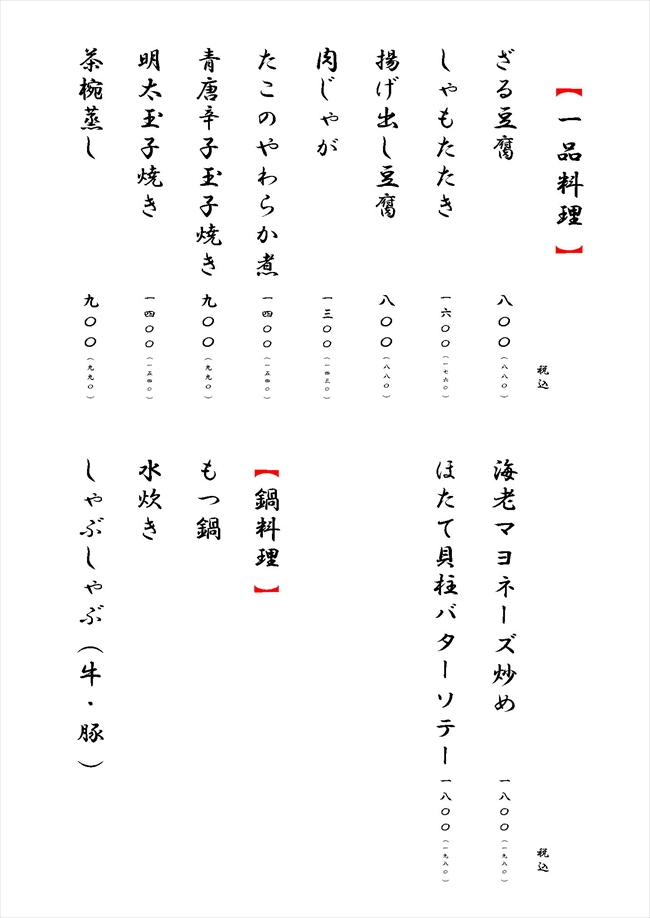 【一品料理】
税込
ざる豆腐 八〇〇(八八〇)
しゃもたたき 一六〇〇(一七六〇)
揚げ出し豆腐 八〇〇(八八〇)
肉じゃが 一三〇〇(一四三〇)
たこのやわらか煮 一四〇〇(一五四〇)
青唐辛子玉子焼き 九〇〇(九九〇)
明太玉子焼き 一四〇〇(一五四〇)
茶椀蒸し 九〇〇(九九〇)
税込
海老マヨネーズ炒め 一八〇〇(一九八〇)
ほたて貝柱バターソテー 一八〇〇(一九八〇)
【鍋料理】
もつ鍋
水炊き
しゃぶしゃぶ(牛・豚)